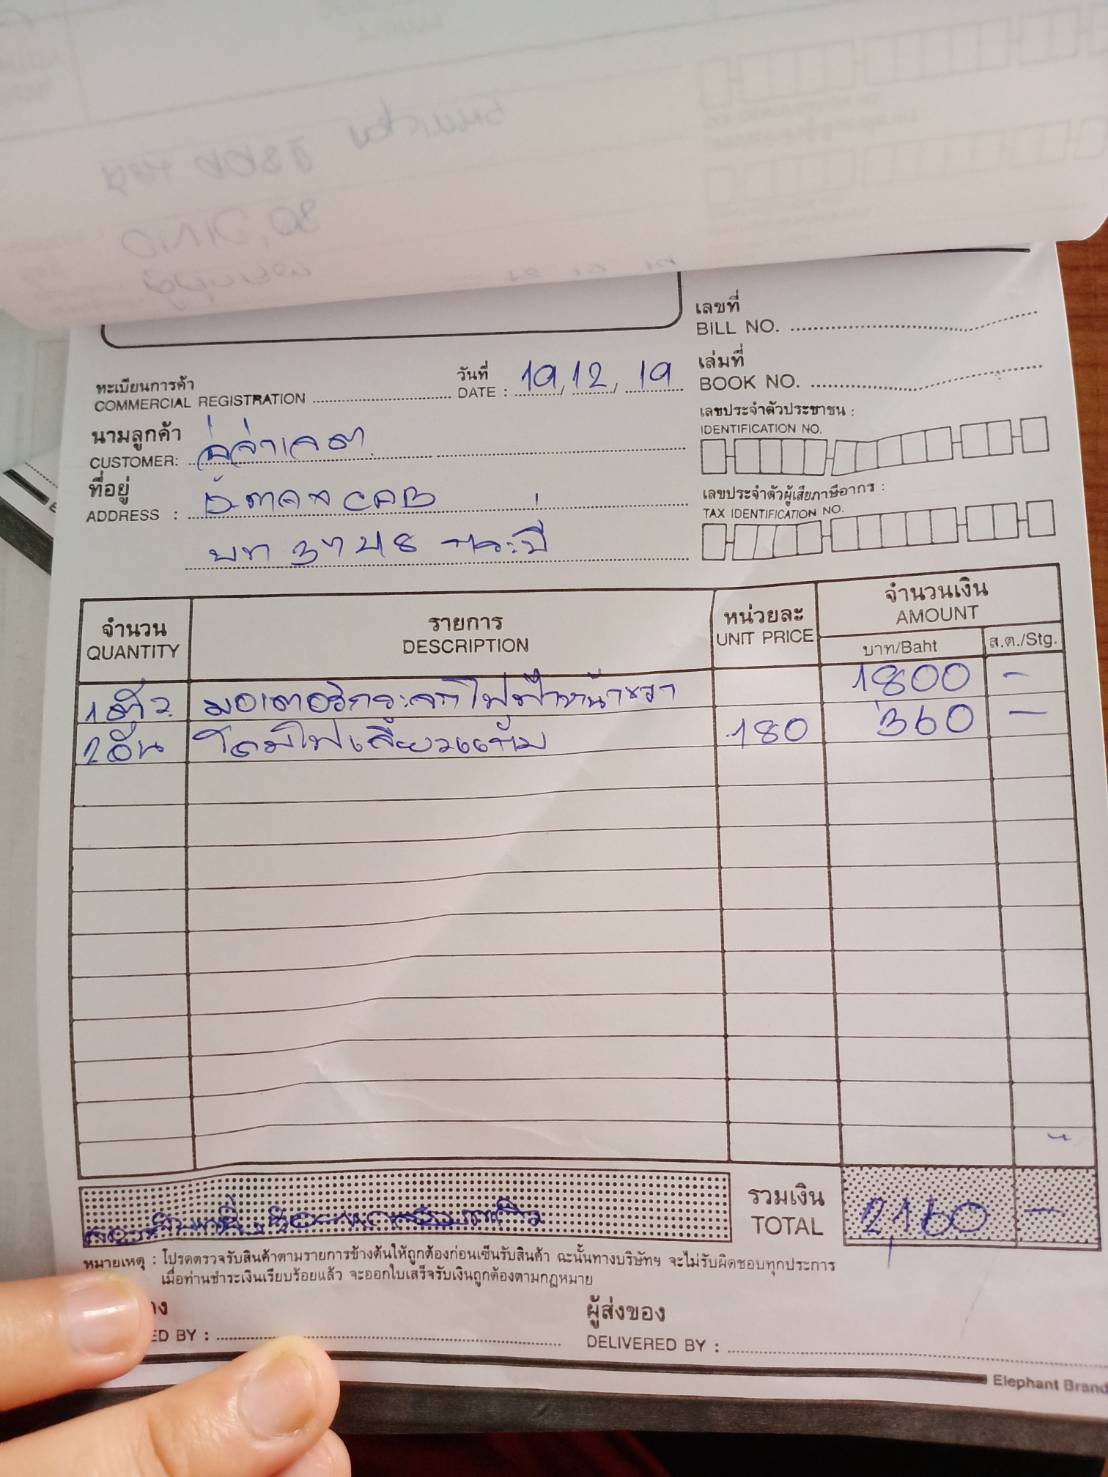 เลขที่
BILL NO.
ทะเบียนการค้า
COMMERCIAL REGISTRATION
วันที่
DATE : 19, 12, 19
เล่มที่
BOOK NO.
นามลูกค้า
CUSTOMER:
เลขประจำตัวประชาชน :
IDENTIFICATION NO.
ที่อยู่
ADDRESS :
บท 3748 กระบี่
เลขประจำตัวผู้เสียภาษีอากร :
TAX IDENTIFICATION NO.
จำนวน
QUANTITY
รายการ
DESCRIPTION
หน่วยละ
UNIT PRICE
จำนวนเงิน
AMOUNT
บาท/Baht
ส.ต./Stg.
1 ตัว มอเตอร์กระจกไฟฟ้าหน้าขวา 1800 -
2 อัน โคมไฟเลี้ยวแก้ม 180 360 -
สองพันหนึ่งร้อยหกสิบบาทถ้วน
รวมเงิน
TOTAL
2,160 -
หมายเหตุ : โปรดตรวจรับสินค้าตามรายการข้างต้นให้ถูกต้องก่อนเซ็นรับสินค้า ฉะนั้นทางบริษัทฯ จะไม่รับผิดชอบทุกประการ
เมื่อท่านชำระเงินเรียบร้อยแล้ว จะออกใบเสร็จรับเงินถูกต้องตามกฎหมาย
ED BY :
ผู้ส่งของ
DELIVERED BY :
Elephant Brand